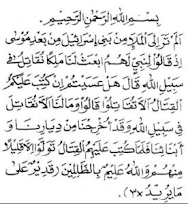 بسم الله الرحمن الرحيم
الم تر الى الملإ من بني اسرائيل من بعد موسى
اذ قالوا لنبي لهم ابعث لنا ملكا نقاتل في
سبيل الله قال هل عسيتم ان كتب عليكم
القتال الا تقاتلوا قالوا وما لنا الا نقاتل
في سبيل الله وقد اخرجنا من ديارنا و
ابنائنا فلما كتب عليهم القتال تولوا الا قليلا
منهم والله عليم بالظالمين (قدير على
ما يريد ٣x)